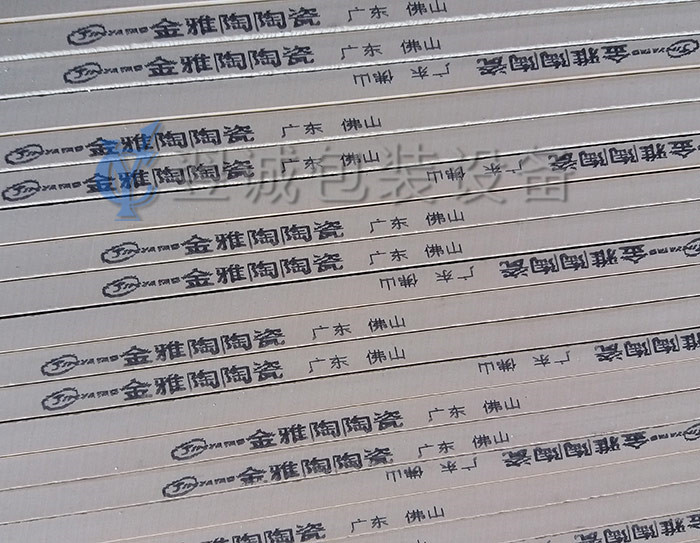 Jin YATAO 金雅陶陶瓷 广东 佛山
Jin YATAO 金雅陶陶瓷 广东 佛山
Jin YATAO 金雅陶陶瓷 广东 佛山
Jin YATAO 金雅陶陶瓷 广东 佛山
诚包装设备
Jin YATAO 金雅陶陶瓷 广东 佛山
金雅陶陶瓷 广东 佛山
Jin YATAO 金雅陶陶瓷 广东 佛山
Jin YATAO 金雅陶陶瓷 广东 佛山
Jin YATAO 金雅陶陶瓷 广东 佛山
Jin YATAO 金雅陶陶瓷 广东 佛山
Jin YATAO 金雅陶陶瓷 广东 佛山
雅陶陶瓷 广东 佛山
Jin YATAO 金雅陶陶瓷 广东 佛山
Jin YATAO 金雅陶陶瓷 广东 佛山
Jin YATAO 金雅陶陶瓷 广东 佛山
金雅陶陶瓷 广东 佛山